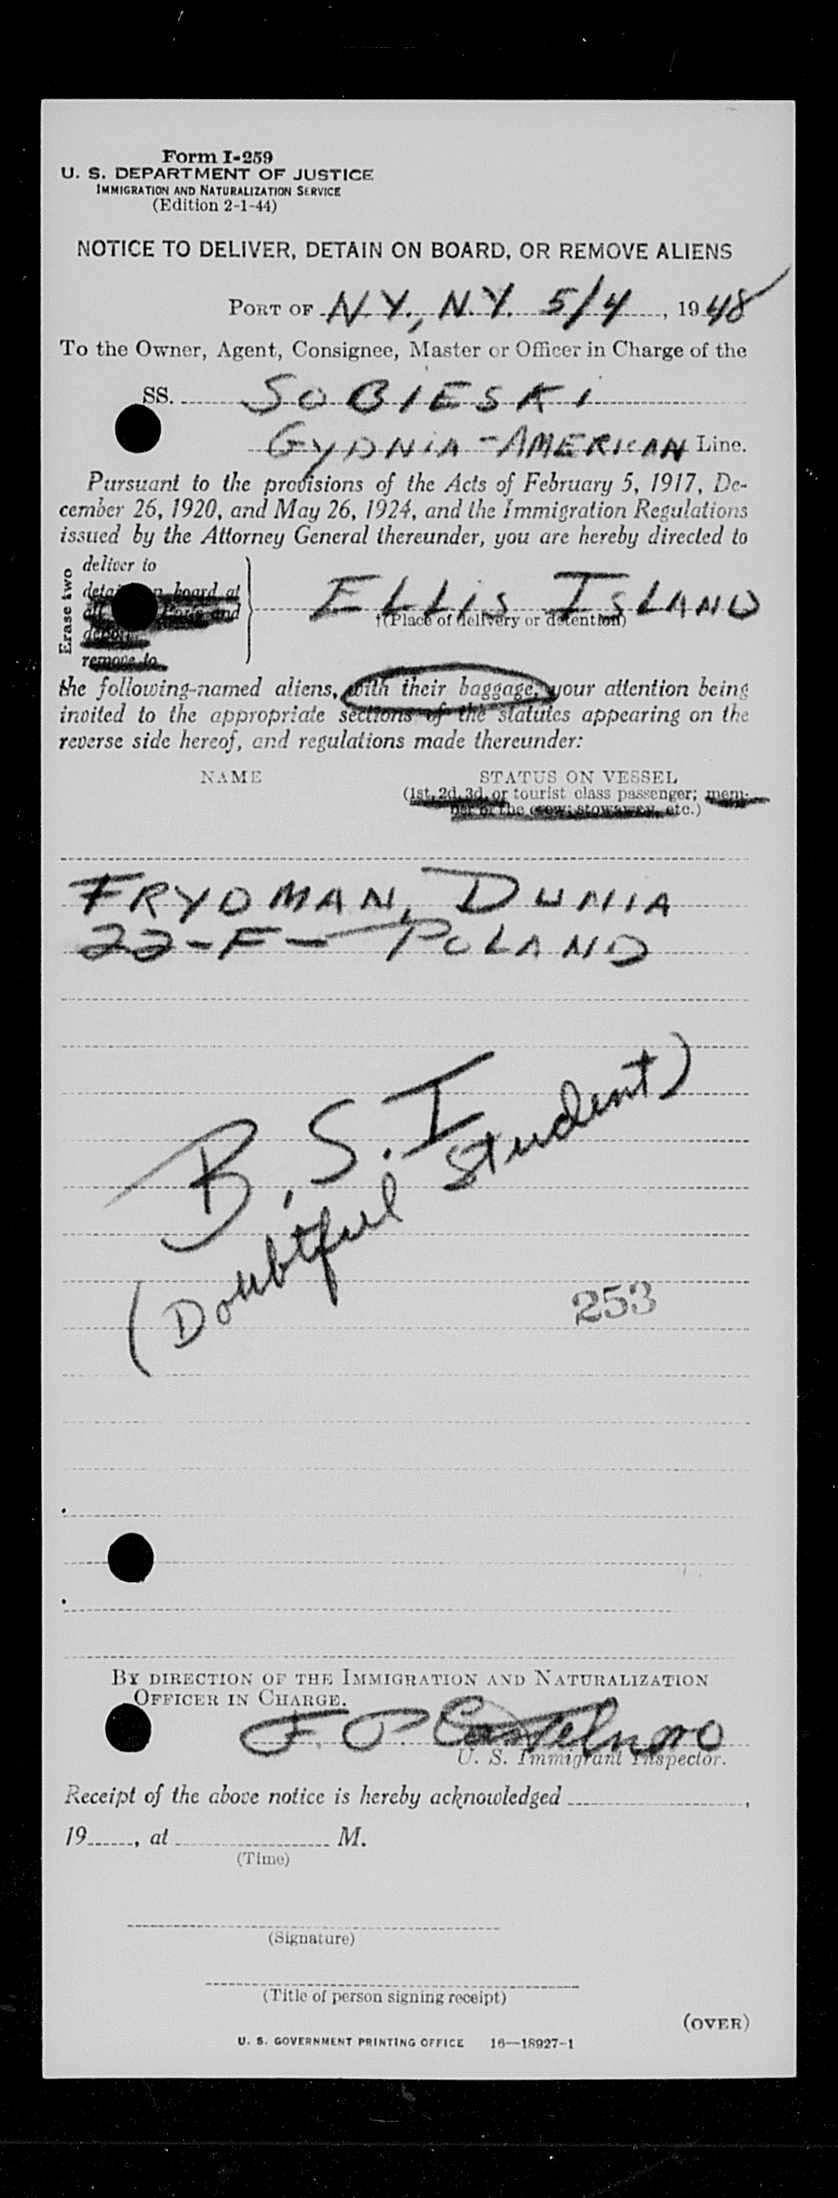 Form I-259
U. S. DEPARTMENT OF JUSTICE
IMMIGRATION AND NATURALIZATION SERVICE
(Edition 2-1-44)
NOTICE TO DELIVER, DETAIN ON BOARD, OR REMOVE ALIENS
PORT OF N.Y., N.Y. 5/4, 1948
To the Owner, Agent, Consignee, Master or Officer in Charge of the
SS. SOBIESKI
GYDNIA-AMERICAN Line.
Pursuant to the provisions of the Acts of February 5, 1917, De-
cember 26, 1920, and May 26, 1924, and the Immigration Regulations
issued by the Attorney General thereunder, you are hereby directed to
Erase two
deliver to
on board at
and
remove to
ELLIS ISLAND
†(Place of delivery or detention)
the following-named aliens, with their baggage, your attention being
invited to the appropriate sections of the statutes appearing on the
reverse side hereof, and regulations made thereunder:
NAME STATUS ON VESSEL
(1st, 2d, 3d, or tourist class passenger; mem-
ber of the crew; stowaway, etc.)
FRYDMAN, DUNIA
22-F- POLAND
B.S.I
(Doubtful Student)
253
BY DIRECTION OF THE IMMIGRATION AND NATURALIZATION
OFFICER IN CHARGE.
U. S. Immigrant Inspector.
Receipt of the above notice is hereby acknowledged ,
19 , at M.
(Time)
(Signature)
(Title of person signing receipt)
(OVER)
U. S. GOVERNMENT PRINTING OFFICE 16—18927-1